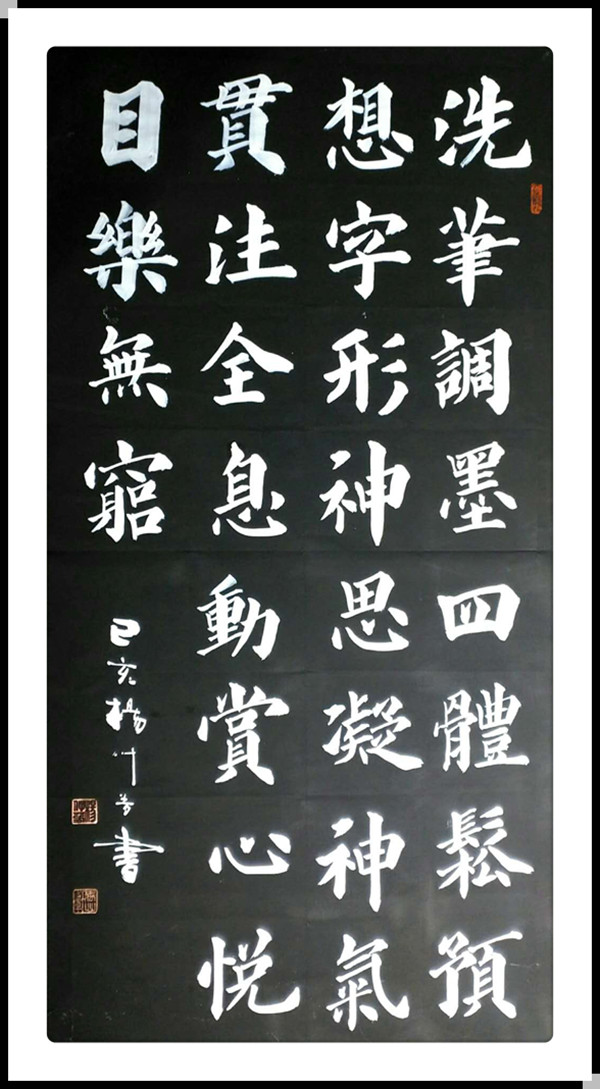 洗筆調墨四體鬆預
想字形神思凝神氣
貫注全息動賞心悅
目樂無窮
己亥楊
書